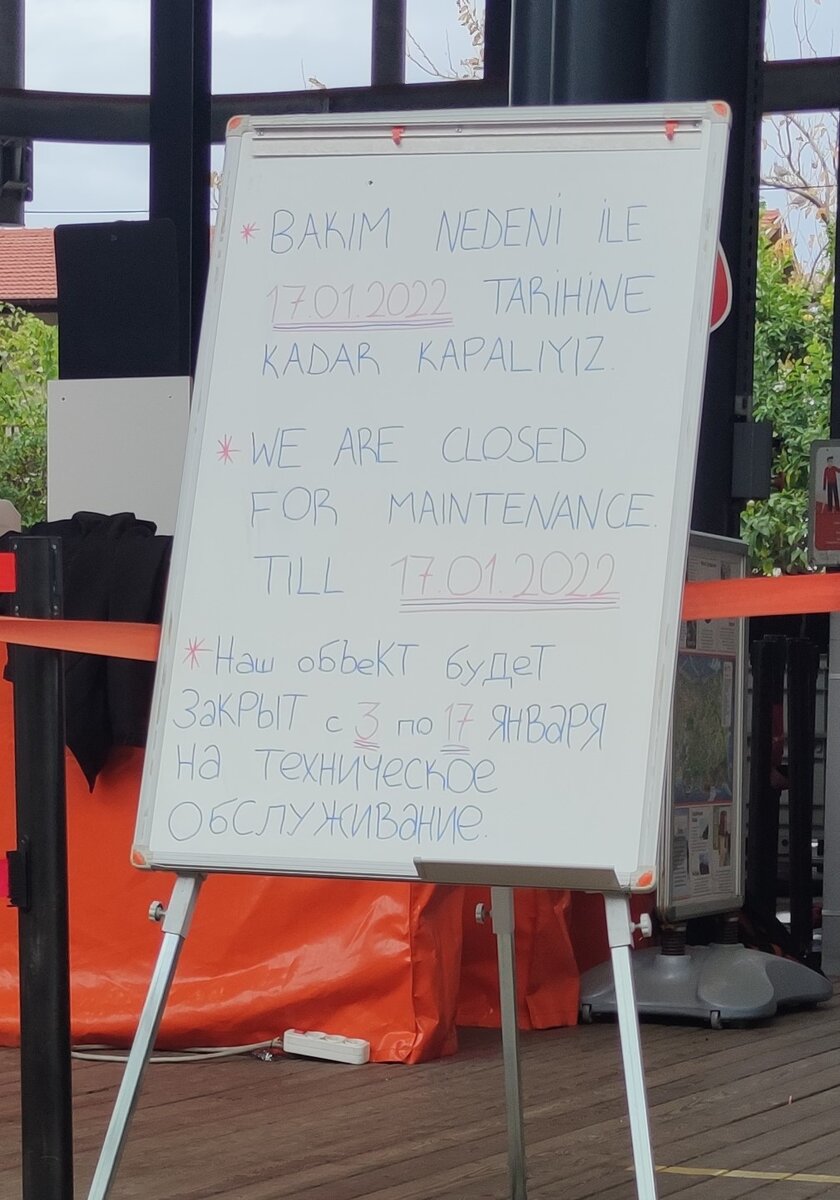 * BAKIM NEDENİ İLE
17.01.2022 TARİHİNE
KADAR KAPALIYIZ.
* WE ARE CLOSED
FOR MAINTENANCE.
TILL 17.01.2022
* Наш объект будет
закрыт с 3 по 17 января
на техническое
обслуживание.